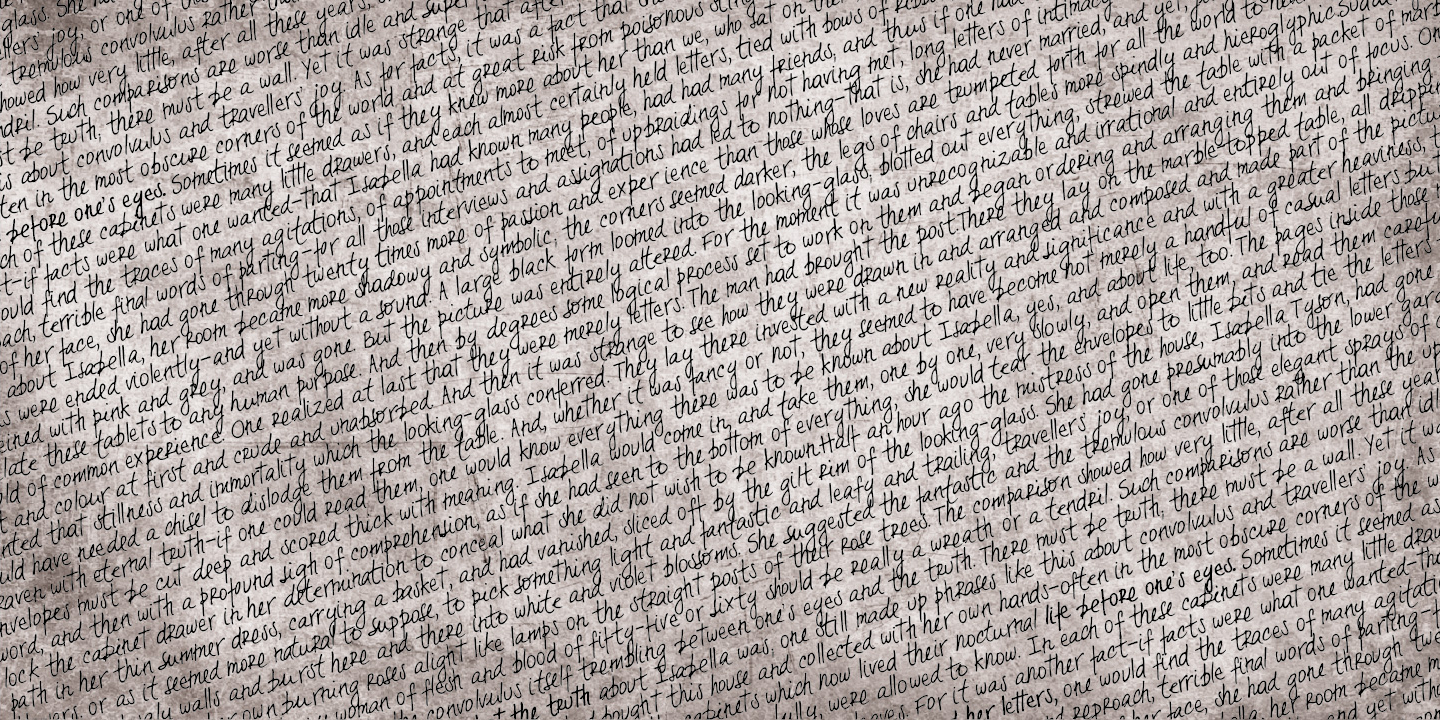 glass. She had
llers' joy, or one of
tremulous convolvulus rather
howed how very little, after all these years,
ndril. Such comparisons are worse than idle and super
st be truth; there must be a wall. Yet it was strange that after
is about convolvulus and travellers' joy. As for facts, it was a fact that
ten in the most obscure corners of the world and at great risk from poisonous sting
before one's eyes. Sometimes it seemed as if they knew more about her than we, who sat on the
ch of these cabinets were many little drawers, and each almost certainly held letters, tied with bows of ribbon
t-if facts were what one wanted-that Isabella had known many people, had had many friends, and thus if one had
ould find the traces of many agitations, of appointments to meet, of upbraidings for not having met, long letters of intimacy
ach, terrible final words of parting-for all those interviews and assignations had led to nothing-that is, she had never married, and yet,
of her face, she had gone through twenty times more of passion and experience than those whose loves are trumpeted forth for all the world to hear
about Isabella, her room became more shadowy and symbolic; the corners seemed darker, the legs of chairs and tables more spindly and hieroglyphic.Sudd
s were ended violently-and yet without a sound. A large black form loomed into the looking-glass; blotted out everything, strewed the table with a packet of marb
eined with pink and grey, and was gone But the picture was entirely altered. For the moment it was unrecognizable and irrational and entirely out of focus. On
late these tablets to any human purpose. And then by degrees some logical process set to work on them and began ordering and arranging them and bringing
ld of common experience. One realized at last that they were merely letters. The man had brought the post.There they lay on the marble-topped table, all dripp
t and colour at first and crude and unabsorbed. And then it was strange to see how they were drawn in and arranged and composed and made part of the pictu
nted that stillness and immortality which the looking-glass conferred. They lay there invested with a new reality and significance and with a greater heaviness,
uld have needed a chisel to dislodge them from the table. And, whether it was fancy or not, they seemed to have become not merely a handful of casual letters bu
raven with eternal truth-if one could read them, one would know everything there was to be known about Isabella, yes, and about life, too. The pages inside those
nvelopes must be cut deep and scored thick with meaning. Isabella would come in, and take them, one by one, very slowly, and open them, and read them carefu
word, and then with a profound sigh of comprehension, as if she had seen to the bottom of everything, she would tear the envelopes to little bits and tie the letters
lock the cabinet drawer in her determination to conceal what she did not wish to be known.Half an hour ago the mistress of the house, Isabella Tyson, had gone
path in her thin summer dress, carrying a basket, and had vanished, sliced off by the gilt rim of the looking-glass. She had gone presumably into the lower gar
wers, or as it seemed more natural to suppose, to pick something light and fantastic and leafy and trailing, travellers' joy, or one of those elegant sprays of
ugly walls and burst here and there into white and violet blossoms. She suggested the fantastic and the tremulous convolvulus rather than the up
own burning roses alight like lamps on the straight posts of their rose trees. The comparison showed how very little, after all these year
woman of flesh and blood of fifty-five or sixty should be really a wreath or a tendril. Such comparisons are worse than idl
convolvulus itself trembling between one's eyes and the truth. There must be truth; there must be a wall. Yet it wa
the truth about Isabella was; one still made up phrases like this about convolvulus and travellers' joy. As
bought this house and collected with her own hands-often in the most obscure corners of the w
cabinets which now lived their nocturnal life before one's eyes. Sometimes it seemed as
lly, were allowed to know. In each of these cabinets were many little draw
leaves. For it was another fact-if facts were what one wanted-th
her letters, one would find the traces of many agitati
reproach, terrible final words of parting
she had gone through twe
her room became m
yet witho